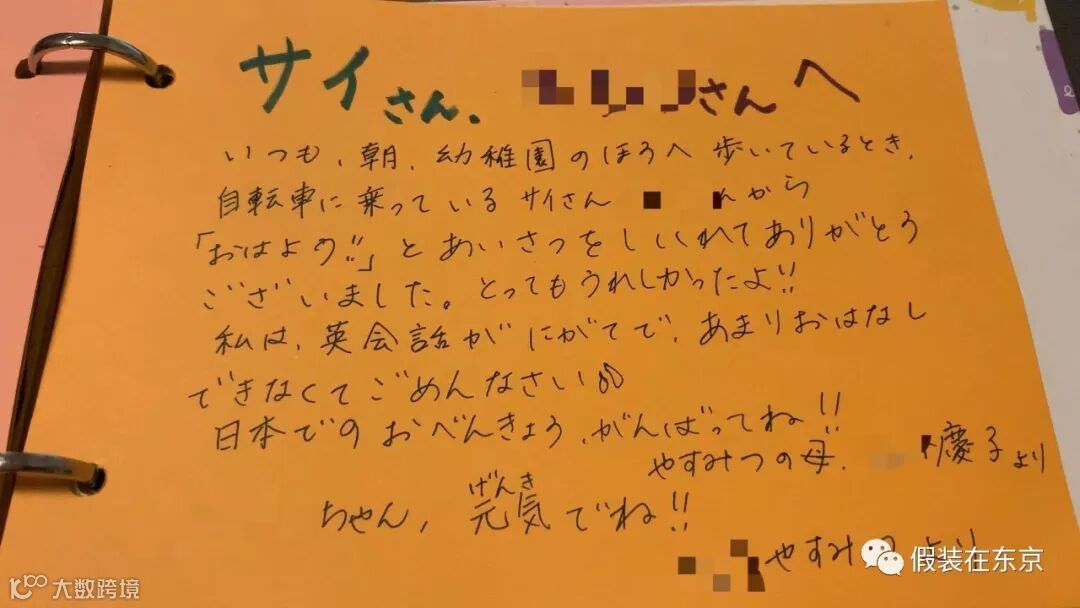 サイさん、 さんへ
いつも、朝、幼稚園のほうへ歩いているとき、
自転車に乗っているサイさん んから
「おはよう!!」とあいさつをしてくれてありがとう
ございました。とってもうれしかったよ!!
私は、英会話がにがてで、あまりおはなし
できなくてごめんなさい
日本でのおべんきょう、がんばってね!!
やすみつの母、 慶子より
げんき
ちゃん、元気でね!!
やすみつより
假装在东京
大数跨境